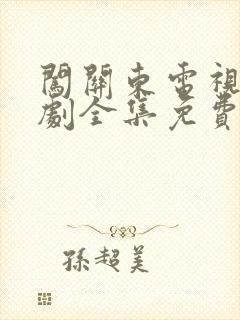 闖關東電視
劇全集免費
孫超美